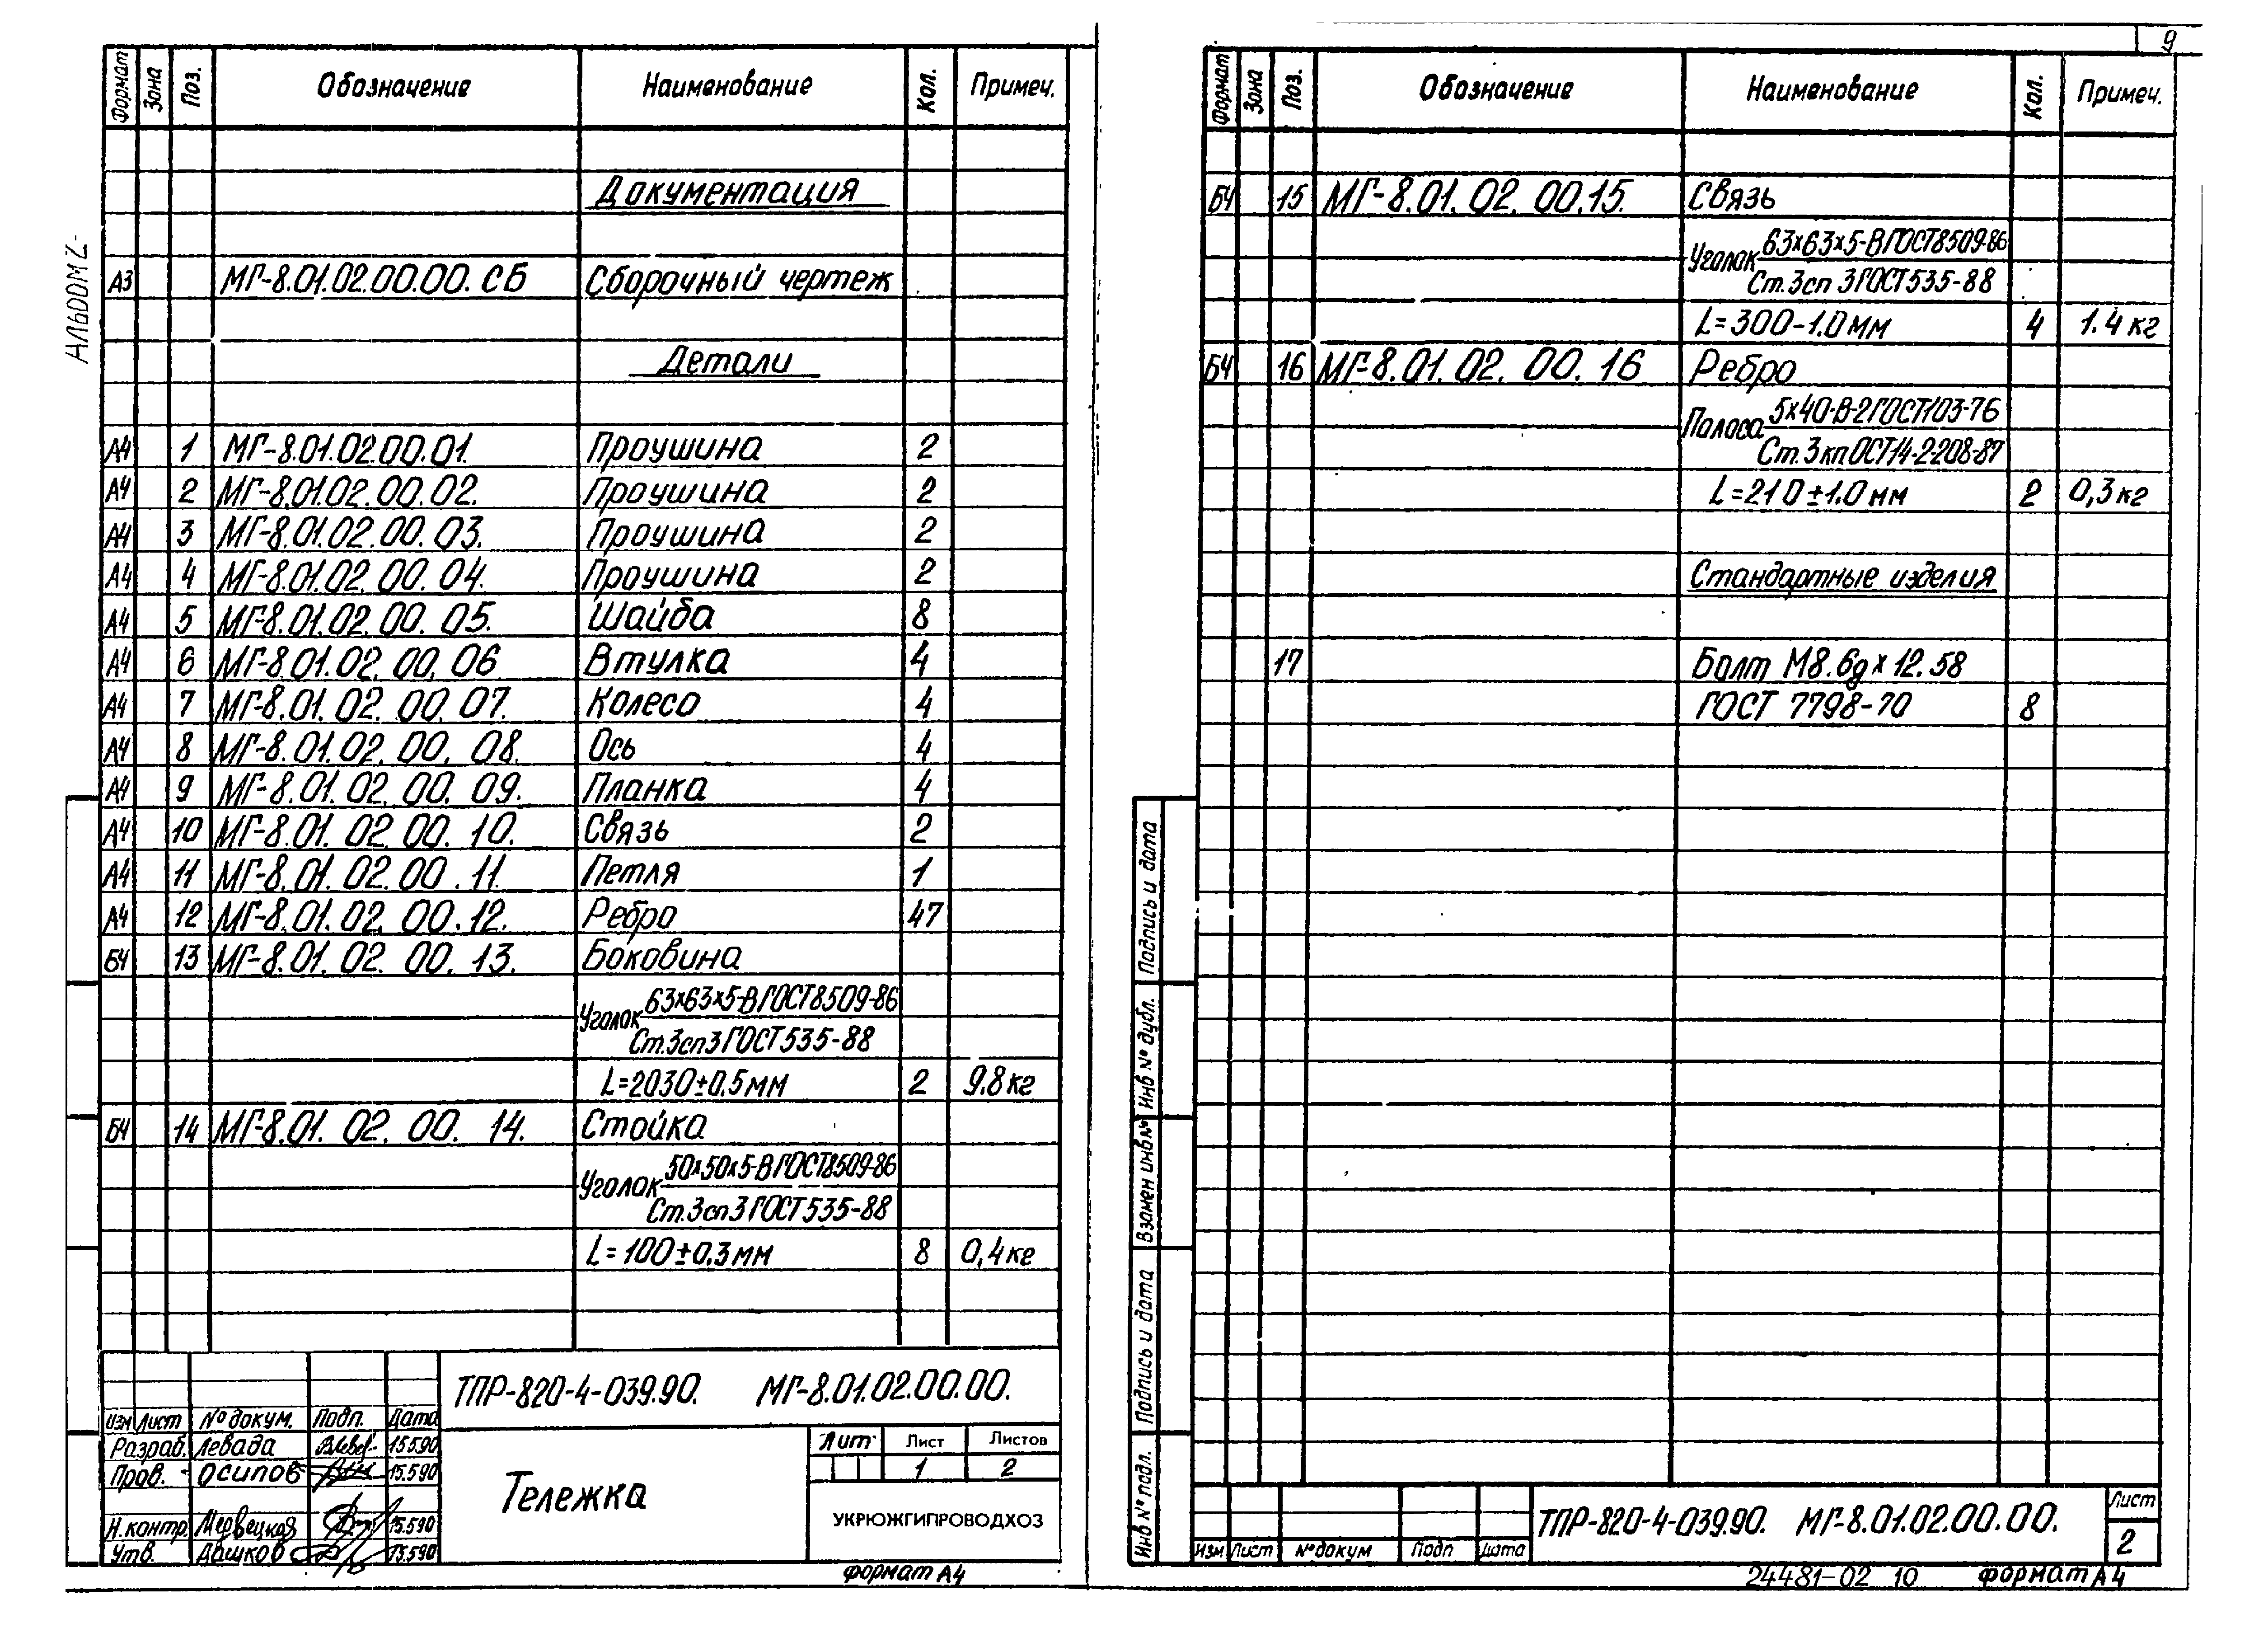 Альбом 2
Формат Зона Поз. Обозначение Наименование Кол. Примеч.
Документация
А3 МГ-8.01.02.00.00. СБ Сборочный чертеж
Детали
А4 1 МГ-8.01.02.00.01. Проушина 2
А4 2 МГ-8.01.02.00.02. Проушина 2
А4 3 МГ-8.01.02.00.03. Проушина 2
А4 4 МГ-8.01.02.00.04. Проушина 2
А4 5 МГ-8.01.02.00.05. Шайба 8
А4 6 МГ-8.01.02.00.06 Втулка 4
А4 7 МГ-8.01.02.00.07. Колесо 4
А4 8 МГ-8.01.02.00.08. Ось 4
А4 9 МГ-8.01.02.00.09. Планка 4
А4 10 МГ-8.01.02.00.10. Связь 2
А4 11 МГ-8.01.02.00.11. Петля 1
А4 12 МГ-8.01.02.00.12. Ребро 47
БЧ 13 МГ-8.01.02.00.13. Боковина
Уголок 63х63х5-В ГОСТ 8509-86
Ст.3сп3 ГОСТ 535-88
L=2030±0.5мм 2 9.8кг
БЧ 14 МГ-8.01.02.00.14. Стойка
Уголок 50х50х5-В ГОСТ 8509-86
Ст.3сп3 ГОСТ 535-88
L=100±0.3мм 8 0,4кг
ТПР-820-4-039.90. МГ-8.01.02.00.00.
Изм Лист № докум. Подп. Дата
Разраб. Левада 15.5.90
Пров. Осипов 15.5.90
Н.контр. Медвецкая 15.5.90
Утв. Дашков 15.5.90
Тележка
Лит Лист Листов
1 2
УКРЮЖГИПРОВОДХОЗ
формат А4
9
Формат Зона Поз. Обозначение Наименование Кол. Примеч.
БЧ 15 МГ-8.01.02.00.15. Связь
Уголок 63х63х5-В ГОСТ 8509-86
Ст.3сп 3 ГОСТ 535-88
L=300-1.0мм 4 1.4кг
БЧ 16 МГ-8.01.02.00.16 Ребро
Полоса 5х40-В-2 ГОСТ 103-76
Ст.3кп ОСТ 14-2-208-87
L=210±1.0мм 2 0,3кг
Стандартные изделия
17 Болт М8.6gх12.58
ГОСТ 7798-70 8
Подпись и дата
Инв № дубл.
Взамен инв №
Подпись и дата
Инв № подл.
ТПР-820-4-039.90. МГ-8.01.02.00.00.
Лист
2
Изм Лист № докум Подп Дата
24481-02 10 формат А4